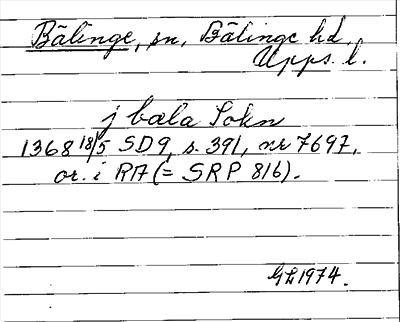 Bälinge, sn, Bälinge hd,
Upps. l.
j bæla Sokn
1368 18/5 SD 9, s. 391, nr 7697,
or. i RA (= SRP 816).
GL 1974.